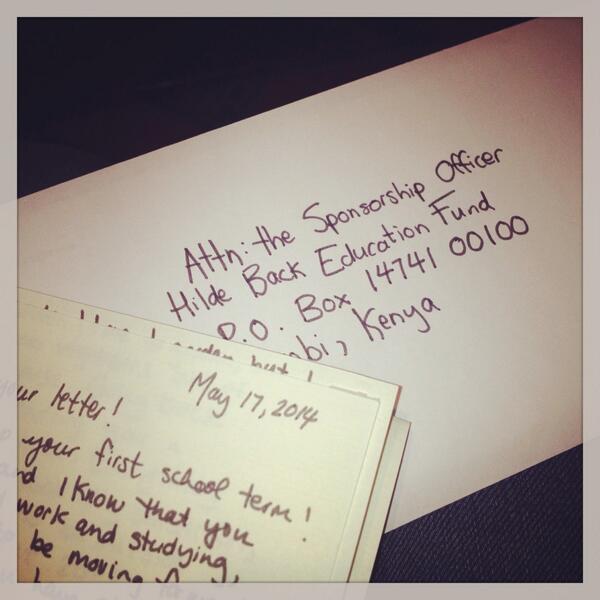 Attn: the Sponsorship Officer
Hilde Back Education Fund
P.O. Box 14741 00100
Kenya
May 17, 2014
letter!
your first school term!
I know that you
work and studying,
be moving